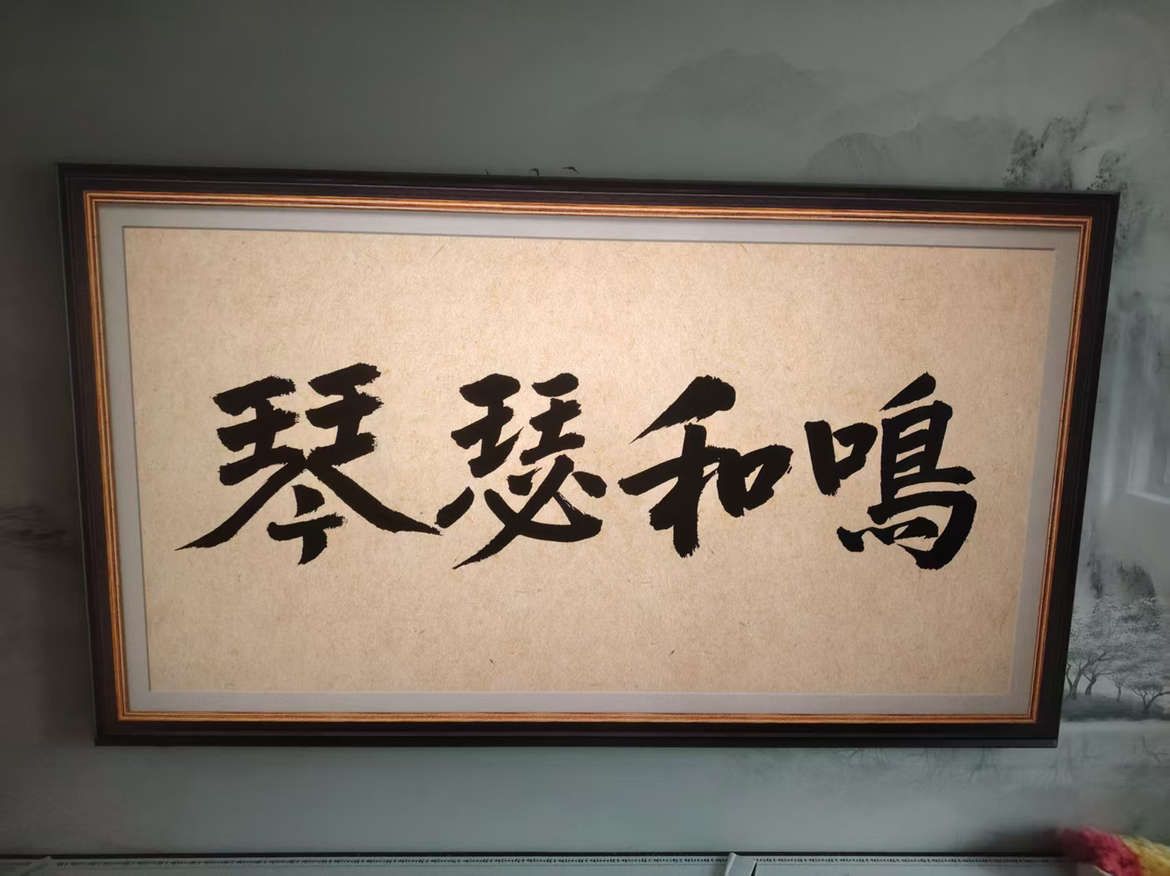 琴瑟和鳴